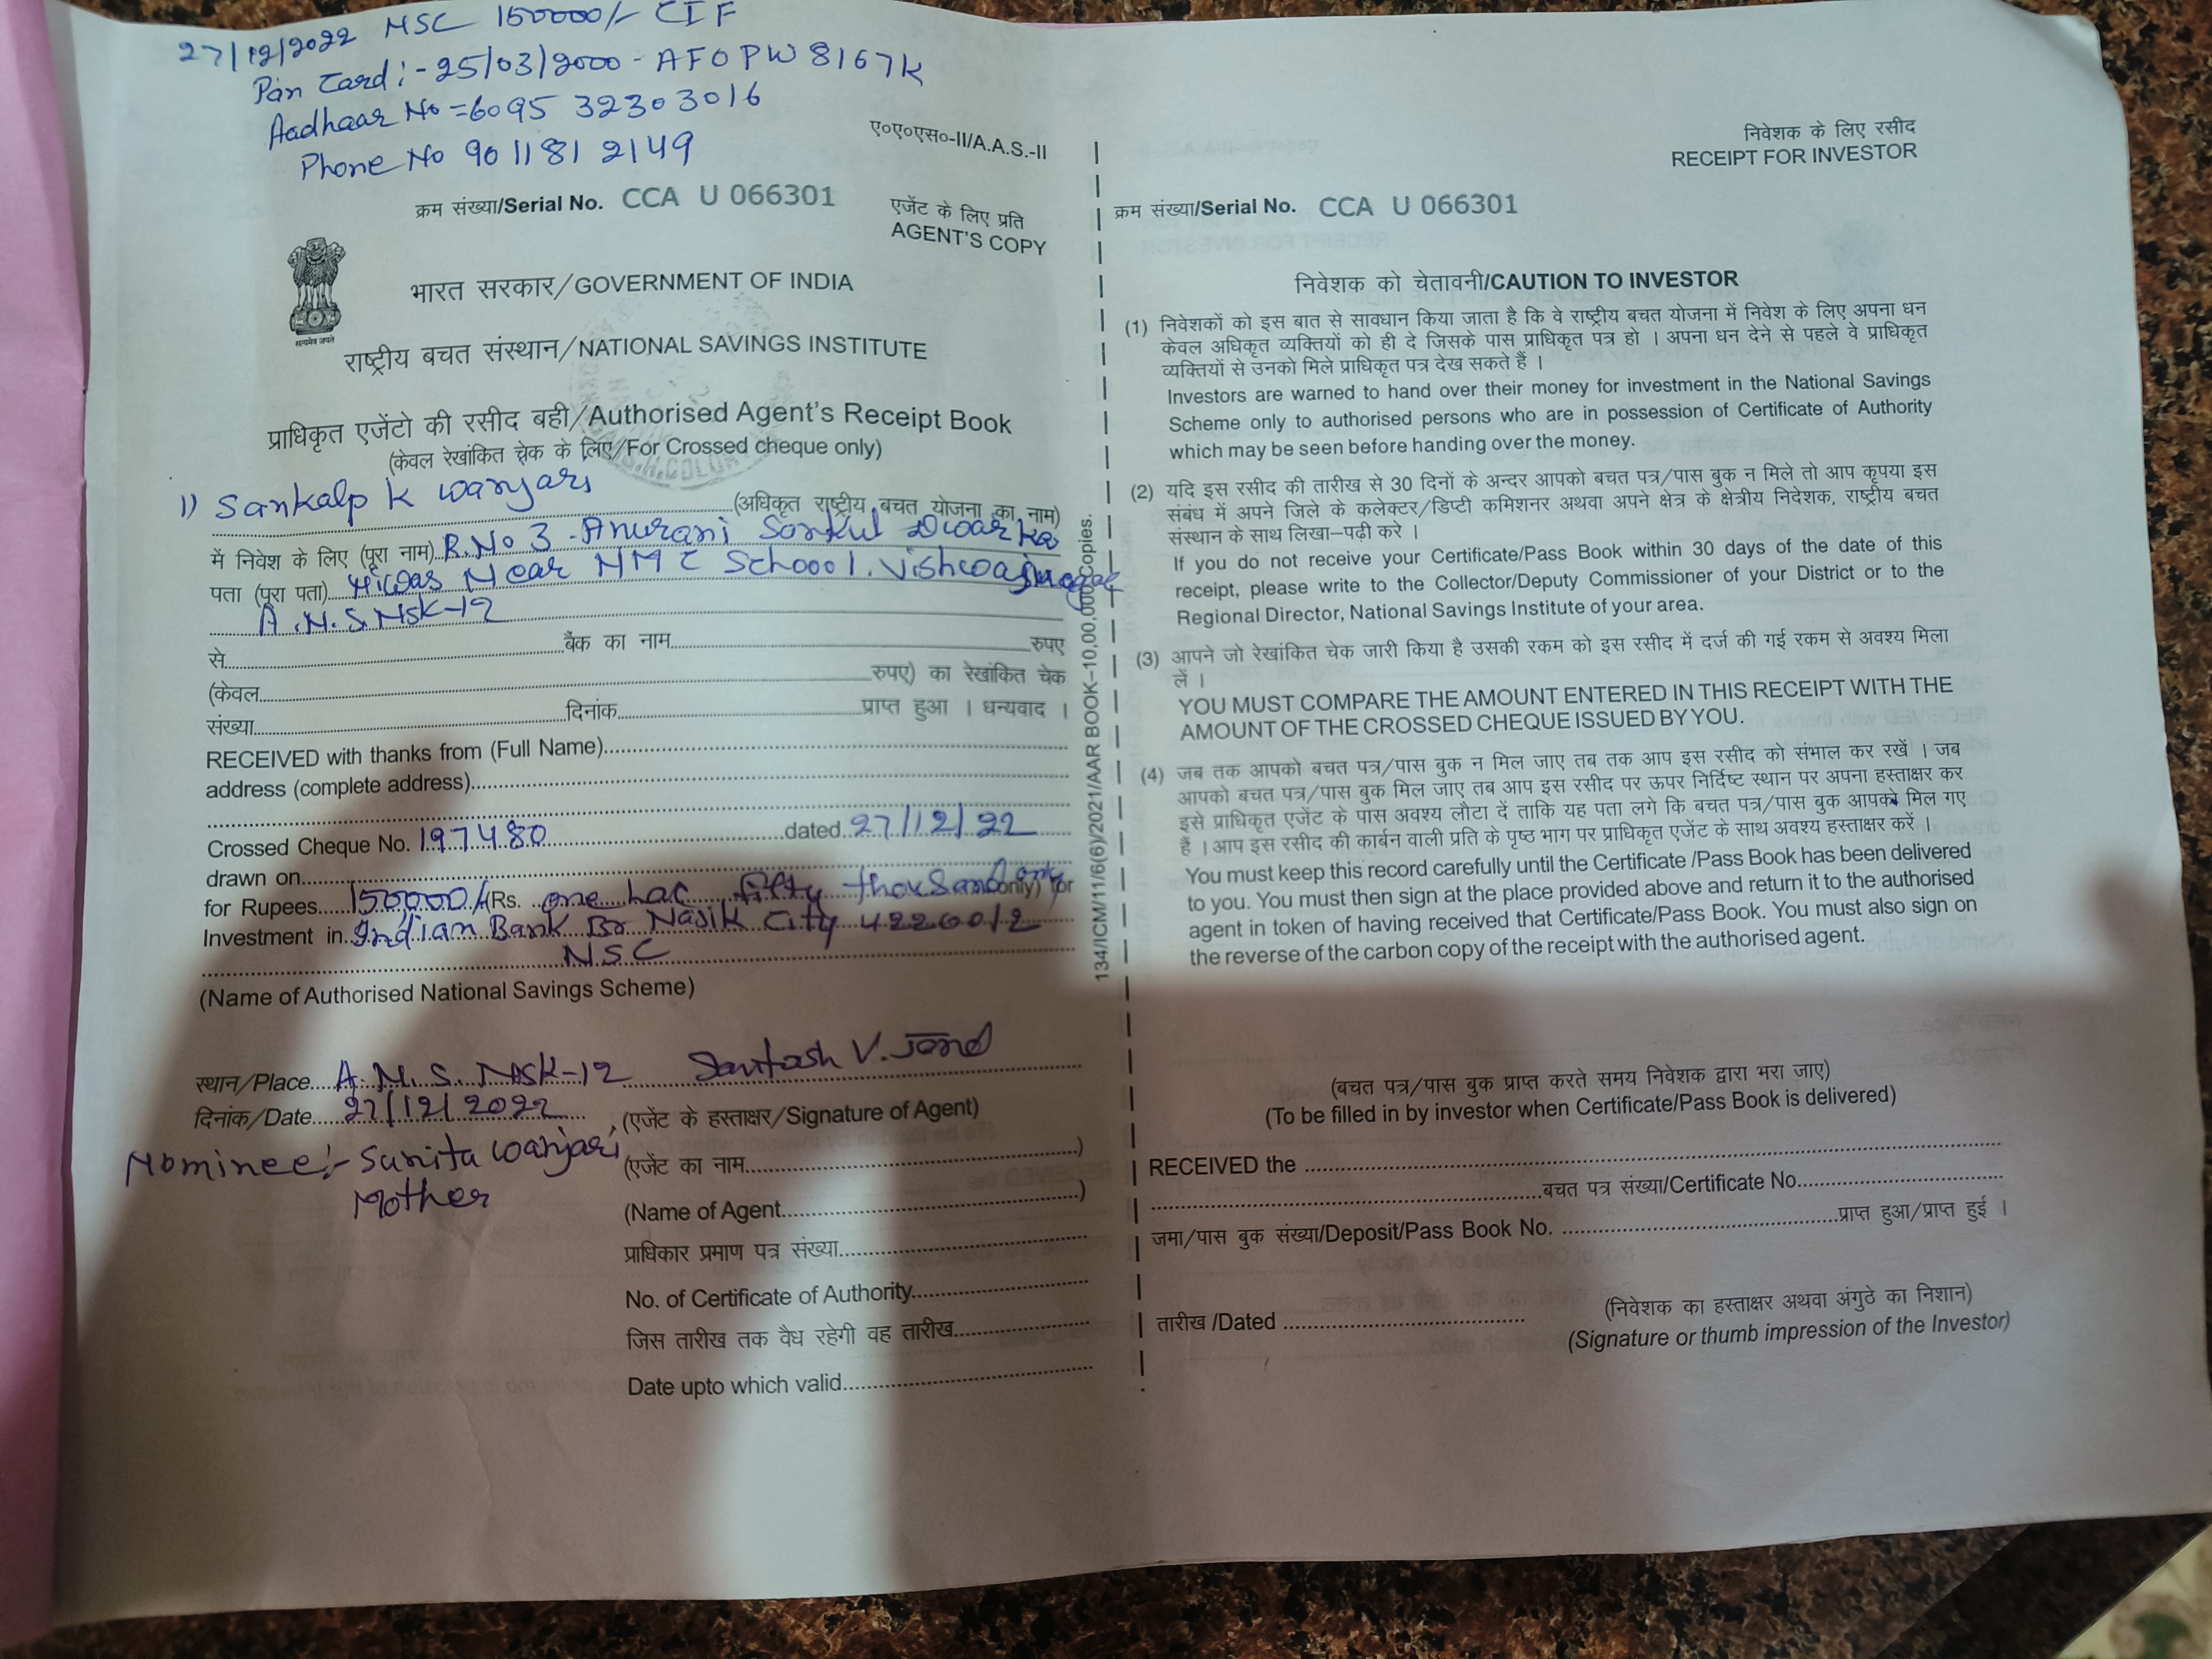 27/12/2022 NSC 150000/- CIF
Pan Card :- 25/03/2000 - AFOPW8167K
Aadhaar No = 6095 3230 3016
Phone No 9011812149
ए०ए०एस०-II/A.A.S.-II
क्रम संख्या/Serial No. CCA U 066301
एजेंट के लिए प्रति
AGENT'S COPY
भारत सरकार/GOVERNMENT OF INDIA
सत्यमेव जयते
राष्ट्रीय बचत संस्थान/NATIONAL SAVINGS INSTITUTE
प्राधिकृत एजेंटो की रसीद बही/Authorised Agent's Receipt Book
(केवल रेखांकित चेक के लिए/For Crossed cheque only)
1) Sankalp K Wanjari
(अधिकृत राष्ट्रीय बचत योजना का नाम)
में निवेश के लिए (पूरा नाम) R.No 3 - Anurani Sonkul Dwarka
पता (पूरा पता) Niwas Near NMC School.
A.N.S.NSK-12
से बैंक का नाम रुपए
(केवल रुपए) का रेखांकित चेक
संख्या दिनांक प्राप्त हुआ । धन्यवाद ।
RECEIVED with thanks from (Full Name)
address (complete address)
Crossed Cheque No. 197480 dated 27/12/22
drawn on
for Rupees 150000/- (Rs. one Lac fifty thousand only only) for
Investment in Indian Bank Br Nasik City 4226012
NSC
(Name of Authorised National Savings Scheme)
स्थान/Place A.N.S. NSK-12 Santosh V.
दिनांक/Date 27/12/2022 (एजेंट के हस्ताक्षर/Signature of Agent)
Nominee:- Sunita Wanjari
Mother
(एजेंट का नाम )
(Name of Agent )
प्राधिकार प्रमाण पत्र संख्या
No. of Certificate of Authority
जिस तारीख तक वैध रहेगी वह तारीख
Date upto which valid
134/ICM/11/6(6)/2021/AAR BOOK–10,00,000 Copies.
निवेशक के लिए रसीद
RECEIPT FOR INVESTOR
क्रम संख्या/Serial No. CCA U 066301
निवेशक को चेतावनी/CAUTION TO INVESTOR
(1) निवेशकों को इस बात से सावधान किया जाता है कि वे राष्ट्रीय बचत योजना में निवेश के लिए अपना धन
केवल अधिकृत व्यक्तियों को ही दे जिसके पास प्राधिकृत पत्र हो । अपना धन देने से पहले वे प्राधिकृत
व्यक्तियों से उनको मिले प्राधिकृत पत्र देख सकते हैं ।
Investors are warned to hand over their money for investment in the National Savings
Scheme only to authorised persons who are in possession of Certificate of Authority
which may be seen before handing over the money.
(2) यदि इस रसीद की तारीख से 30 दिनों के अन्दर आपको बचत पत्र/पास बुक न मिले तो आप कृपया इस
संबंध में अपने जिले के कलेक्टर/डिप्टी कमिशनर अथवा अपने क्षेत्र के क्षेत्रीय निदेशक, राष्ट्रीय बचत
संस्थान के साथ लिखा–पढ़ी करे ।
If you do not receive your Certificate/Pass Book within 30 days of the date of this
receipt, please write to the Collector/Deputy Commissioner of your District or to the
Regional Director, National Savings Institute of your area.
(3) आपने जो रेखांकित चेक जारी किया है उसकी रकम को इस रसीद में दर्ज की गई रकम से अवश्य मिला
लें ।
YOU MUST COMPARE THE AMOUNT ENTERED IN THIS RECEIPT WITH THE
AMOUNT OF THE CROSSED CHEQUE ISSUED BY YOU.
(4) जब तक आपको बचत पत्र/पास बुक न मिल जाए तब तक आप इस रसीद को संभाल कर रखें । जब
आपको बचत पत्र/पास बुक मिल जाए तब आप इस रसीद पर ऊपर निर्दिष्ट स्थान पर अपना हस्ताक्षर कर
इसे प्राधिकृत एजेंट के पास अवश्य लौटा दें ताकि यह पता लगे कि बचत पत्र/पास बुक आपको मिल गए
हैं । आप इस रसीद की कार्बन वाली प्रति के पृष्ठ भाग पर प्राधिकृत एजेंट के साथ अवश्य हस्ताक्षर करें ।
You must keep this record carefully until the Certificate /Pass Book has been delivered
to you. You must then sign at the place provided above and return it to the authorised
agent in token of having received that Certificate/Pass Book. You must also sign on
the reverse of the carbon copy of the receipt with the authorised agent.
(बचत पत्र/पास बुक प्राप्त करते समय निवेशक द्वारा भरा जाए)
(To be filled in by investor when Certificate/Pass Book is delivered)
RECEIVED the
बचत पत्र संख्या/Certificate No.
जमा/पास बुक संख्या/Deposit/Pass Book No. प्राप्त हुआ/प्राप्त हुई ।
तारीख /Dated
(निवेशक का हस्ताक्षर अथवा अंगुठे का निशान)
(Signature or thumb impression of the Investor)